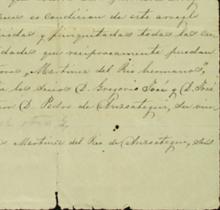 es condicion de este arregl
y finiquitadas todas las cu
dades que reciprocamente puedan
"Martinez del Rio hermanos",
los Señores D. Gregorio José y D. José
D. Pedro de Anzoategui, su viu
Martinez del Rio de Anzoategui, sus